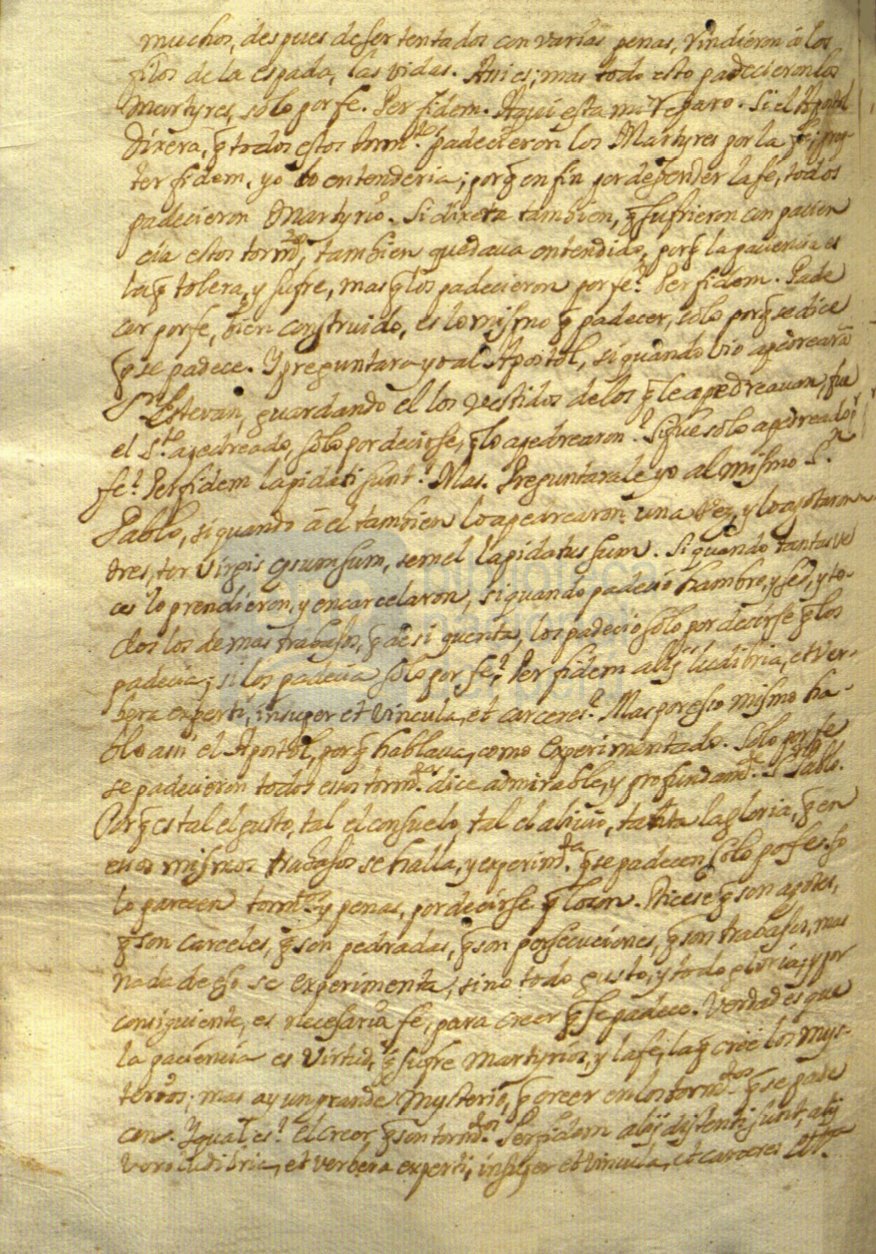 muchos, despues de ser tentados con varias penas, rindieron â los
filos de la espada, las vidas. Assi es; mas todo esto padecieron los
Martyres, solo por fe. Per fidem. Aqui esta mi reparo. Si el Apostol
dixera, q̃ todos estos tormtos padecieron los Martyres por la fe; prop-
ter fidem, yo lo entenderia; porq̃ en fin por defender la fe, todos
padecieron Martyrio. Si dixera tambien, q̃ sufrieron con pacien
cia estos tormtos, tambien quedaua entendido, porq̃ la paciencia es
la q̃ tolera, y sufre, mas q̃ los padecieron por fe? Per fidem. Pade
cer por fe, bien construido, es lo mismo q̃ padecer, solo porq̃ se dice
q̃ se padece. Y preguntara yo al Apostol, si quando vio apedrear â
Sn Estevan, guardando el los vestidos de los q̃ le apedreauan, fue
el Sto apedreado, solo por decirse, q̃ lo apedrearon? Si fue solo apedreado por
fe? Per fidem lapidati sunt? Mas. Preguntarale yo al mismo Sn
Pablo, si quando â el tambien lo apedrearon una vez, y lo azotaron
tres, ter virgis cæsus sum, semel lapidatus sum. Si quando tantas ve
ces lo prendieron, y encarcelaron, si quando padecio hambre, y sed, y to-
dos los demas trabajos, q̃ de si quenta, los padecio solo por decirse q̃ los
padecia; si los padecia solo por fe? Per fidem alij ludibria, et ver-
bera experti, insuper et vincula, et carceres? Mas por esso mismo ha-
blo assi el Apostol, porq̃ hablaua, como experimentado. Solo por fe
se padecieron todos essos tormtos dice admirable, y profundamte S. Pablo.
Porq̃ es tal el gusto, tal el consuelo, tal el alivio, tanta la gloria, q̃ en
essos mismos trabajos se halla, y experimta q̃ se padecen solo por fe. So
lo parecen tormtos y penas, por decirse q̃ lo son. Dicese q̃ son azotes,
q̃ son carceles, q̃ son pedradas, q̃ son persecuciones, q̃ son trabajos, mas
nada de esso se experimenta, sino todo gusto, y todo gloria; y por
consiguiente, es necesaria fe, para creer q̃ se padece. Verdad es que
la paciencia es virtud, q̃ sufre martyrios, y la fe, la q̃ cree los mys-
terios; mas ay un grande Mysterio, q̃ creer en los tormtos q̃ se pade
cen. Y qual es? El creer, q̃ son tormtos. Per fidem alij distenti sunt, alij
vero ludibria, et verbera experti, insuper et vincula, et carceres